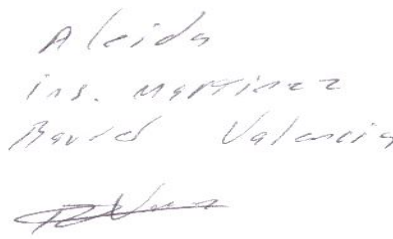 Aleida
ins. Martinez
David Valencia